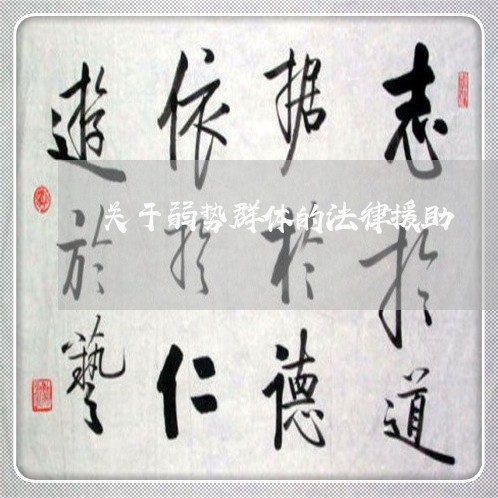 志於道
据於德
依於仁
遊於藝
关于弱势群体的法律援助